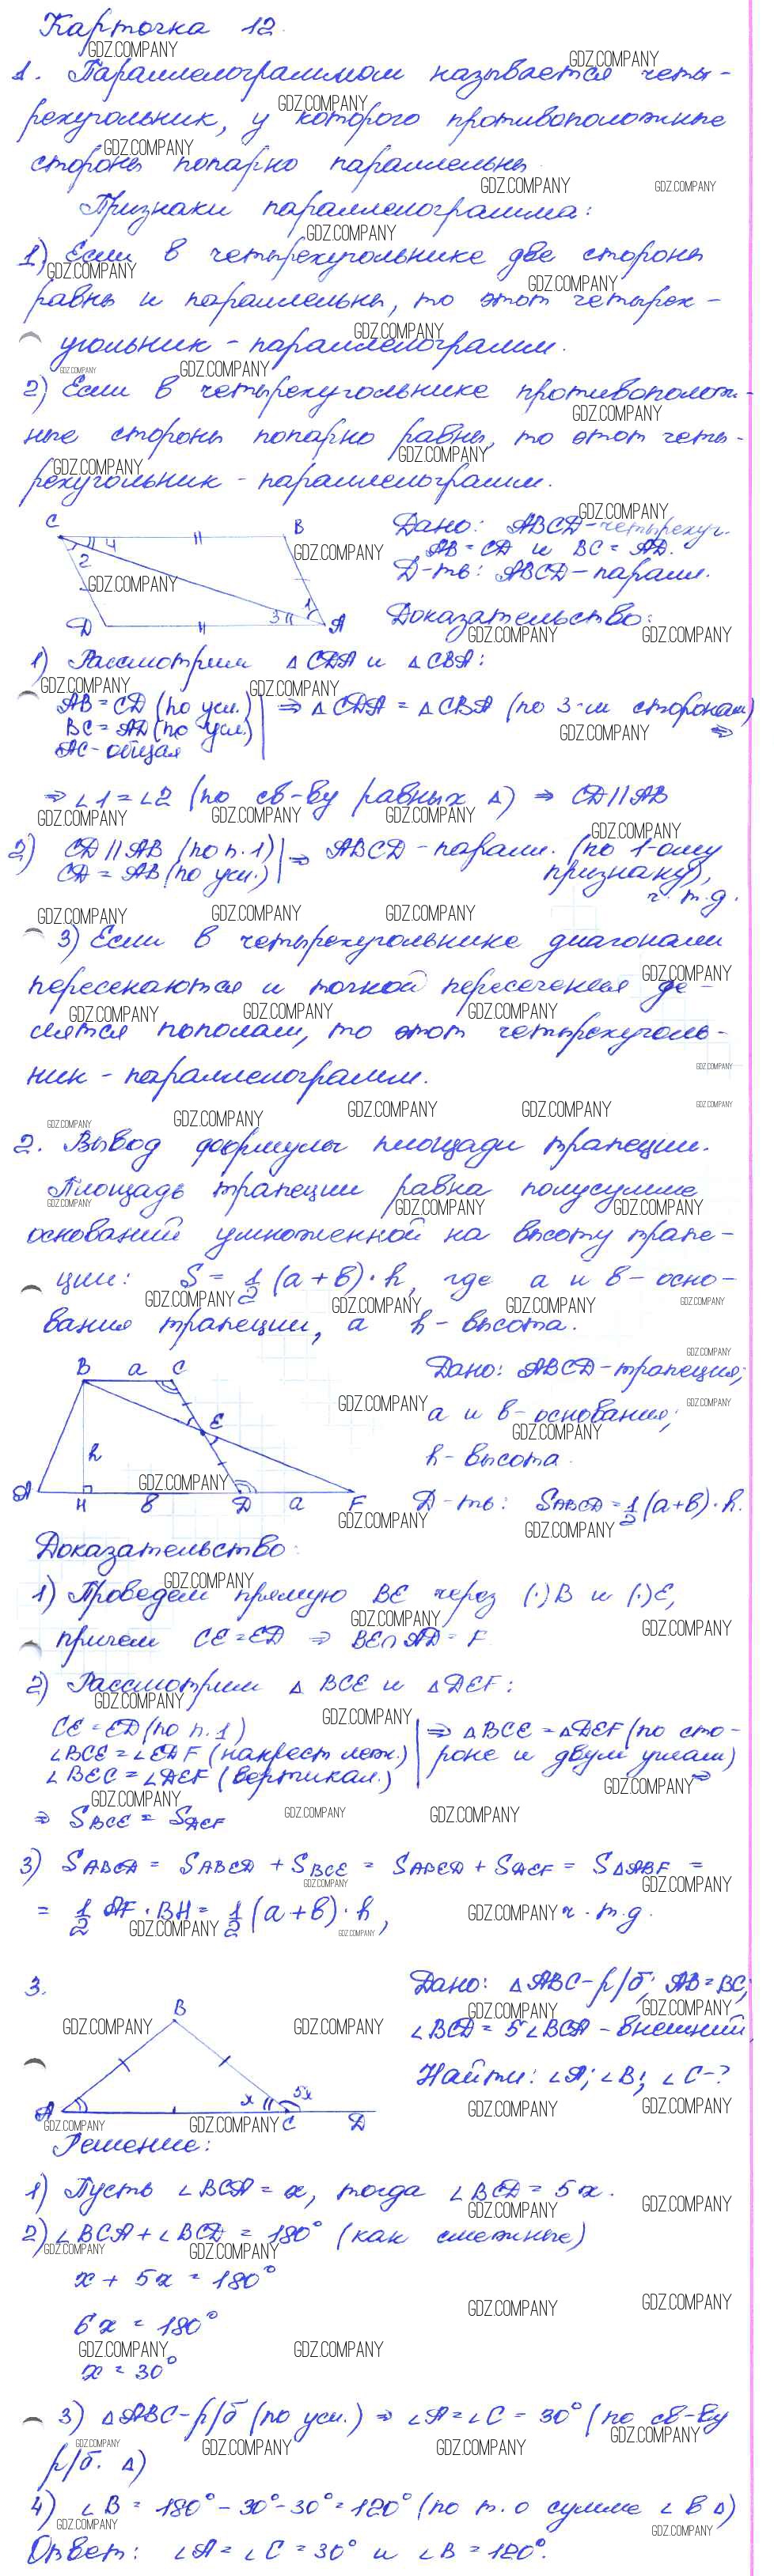 Карточка 12.
1. Параллелограммом называется четы-
рехугольник, у которого противоположные
стороны попарно параллельны.
Признаки параллелограмма:
1) Если в четырехугольнике две стороны
равны и параллельны, то этот четырех-
угольник - параллелограмм.
2) Если в четырехугольнике противополож-
ные стороны попарно равны, то этот четы-
рехугольник - параллелограмм.
C B D A 1 2 3 4
Дано: ABCD-четырехуг.
AB = CD и BC = AD.
Д-ть: ABCD - паралл.
Доказательство:
1) Рассмотрим △CDA и △CBA:
AB = CD (по усл.)
BC = AD (по усл.)
AC - общая
⇒ △CDA = △CBA (по 3-м сторонам) ⇒
⇒ ∠1 = ∠2 (по св-ву равных △) ⇒ CD || AB
2) CD || AB (по п.1)
CD = AB (по усл.)
⇒ ABCD - паралл. (по 1-ому
признаку),
ч.т.д.
3) Если в четырехугольнике диагонали
пересекаются и точкой пересечения де-
лятся пополам, то этот четырехуголь-
ник - параллелограмм.
2. Вывод формулы площади трапеции.
Площадь трапеции равна полусумме
оснований умноженной на высоту трапе-
ции: S = 1/2 (a + b) · h, где a и b - осно-
вания трапеции, а h - высота.
B a C E h A H b D a F
Дано: ABCD-трапеция;
a и b - основания;
h - высота.
Д-ть: SABCD = 1/2 (a+b) · h.
Доказательство:
1) Проведем прямую BE через (·)B и (·)E,
причем CE = ED ⇒ BE∩AD = F
2) Рассмотрим △BCE и △DEF:
CE = ED (по п.1)
∠BCE = ∠EDF (накрест леж.)
∠BEC = ∠DEF (вертикал.)
⇒ △BCE = △DEF (по сто-
роне и двум углам) ⇒
⇒ SBCE = SDEF
3) SABCD = SABED + SBCE = SABED + SDEF = S△ABF =
= 1/2 AF · BH = 1/2 (a + b) · h, ч.т.д.
3.
B A x 5x C D
Дано: △ABC-р/б; AB = BC;
∠BCD = 5∠BCA - внешний
Найти: ∠A; ∠B; ∠C-?
Решение:
1) Пусть ∠BCA = x, тогда ∠BCD = 5x.
2) ∠BCA + ∠BCD = 180° (как смежные)
x + 5x = 180°
6x = 180°
x = 30°
3) △ABC-р/б (по усл.) ⇒ ∠A = ∠C = 30° (по св-ву
р/б. △)
4) ∠B = 180° - 30° - 30° = 120° (по т. о сумме ∠ в △)
Ответ: ∠A = ∠C = 30° и ∠B = 120°.
GDZ.COMPANY